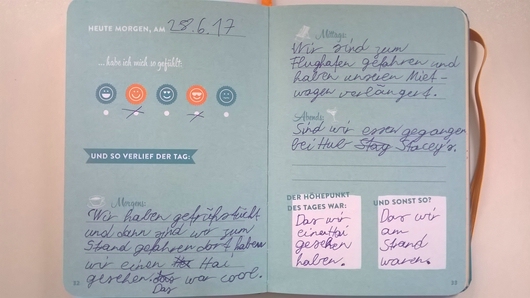 HEUTE MORGEN, AM 28.6.17
... habe ich mich so gefühlt:
UND SO VERLIEF DER TAG:
Morgens:
Wir haben gefrühstückt
und dann sind wir zum
Strand gefahren dort haben
wir einen Hai
gesehen. Das war cool.
32
Mittags:
Wir sind zum
Flughafen gefahren und
haben unseren Miet-
wagen verlängert.
Abends:
Sind wir essen gegangen
bei Hub Stacey's.
DER HÖHEPUNKT
DES TAGES WAR:
Das wir
einen Hai
gesehen
haben.
UND SONST SO?
Das wir
am
Strand
waren.
33